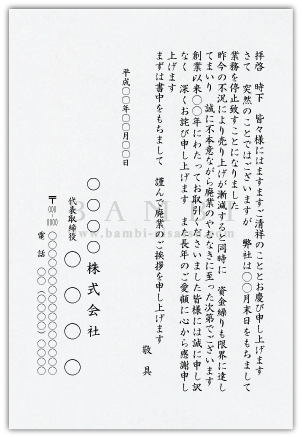 拝啓 時下 皆々様にはますますご清祥のこととお慶び申し上げます
さて 突然のことではございますが 弊社は〇〇月末日をもちまして
業務を停止致すことになりました
昨今の不況により売り上げが漸減すると同時に 資金繰りも限界に達し
てまいり 誠に不本意ながら廃業のやむなきに至った次第でございます
創業以来〇〇年にわたってお取引くださいました皆様には誠に申し訳
なく 深くお詫び申し上げます また長年のご愛顧に心から感謝申し
上げます
まずは書中をもちまして 謹んで廃業のご挨拶を申し上げます
敬具
平成〇〇年〇〇月〇〇日
〇〇〇〇株式会社
代表取締役 〇〇〇〇
〒000-0000
〇〇〇〇〇〇〇〇〇〇〇〇
電話 〇〇〇〇〇〇〇〇〇〇
BANBI